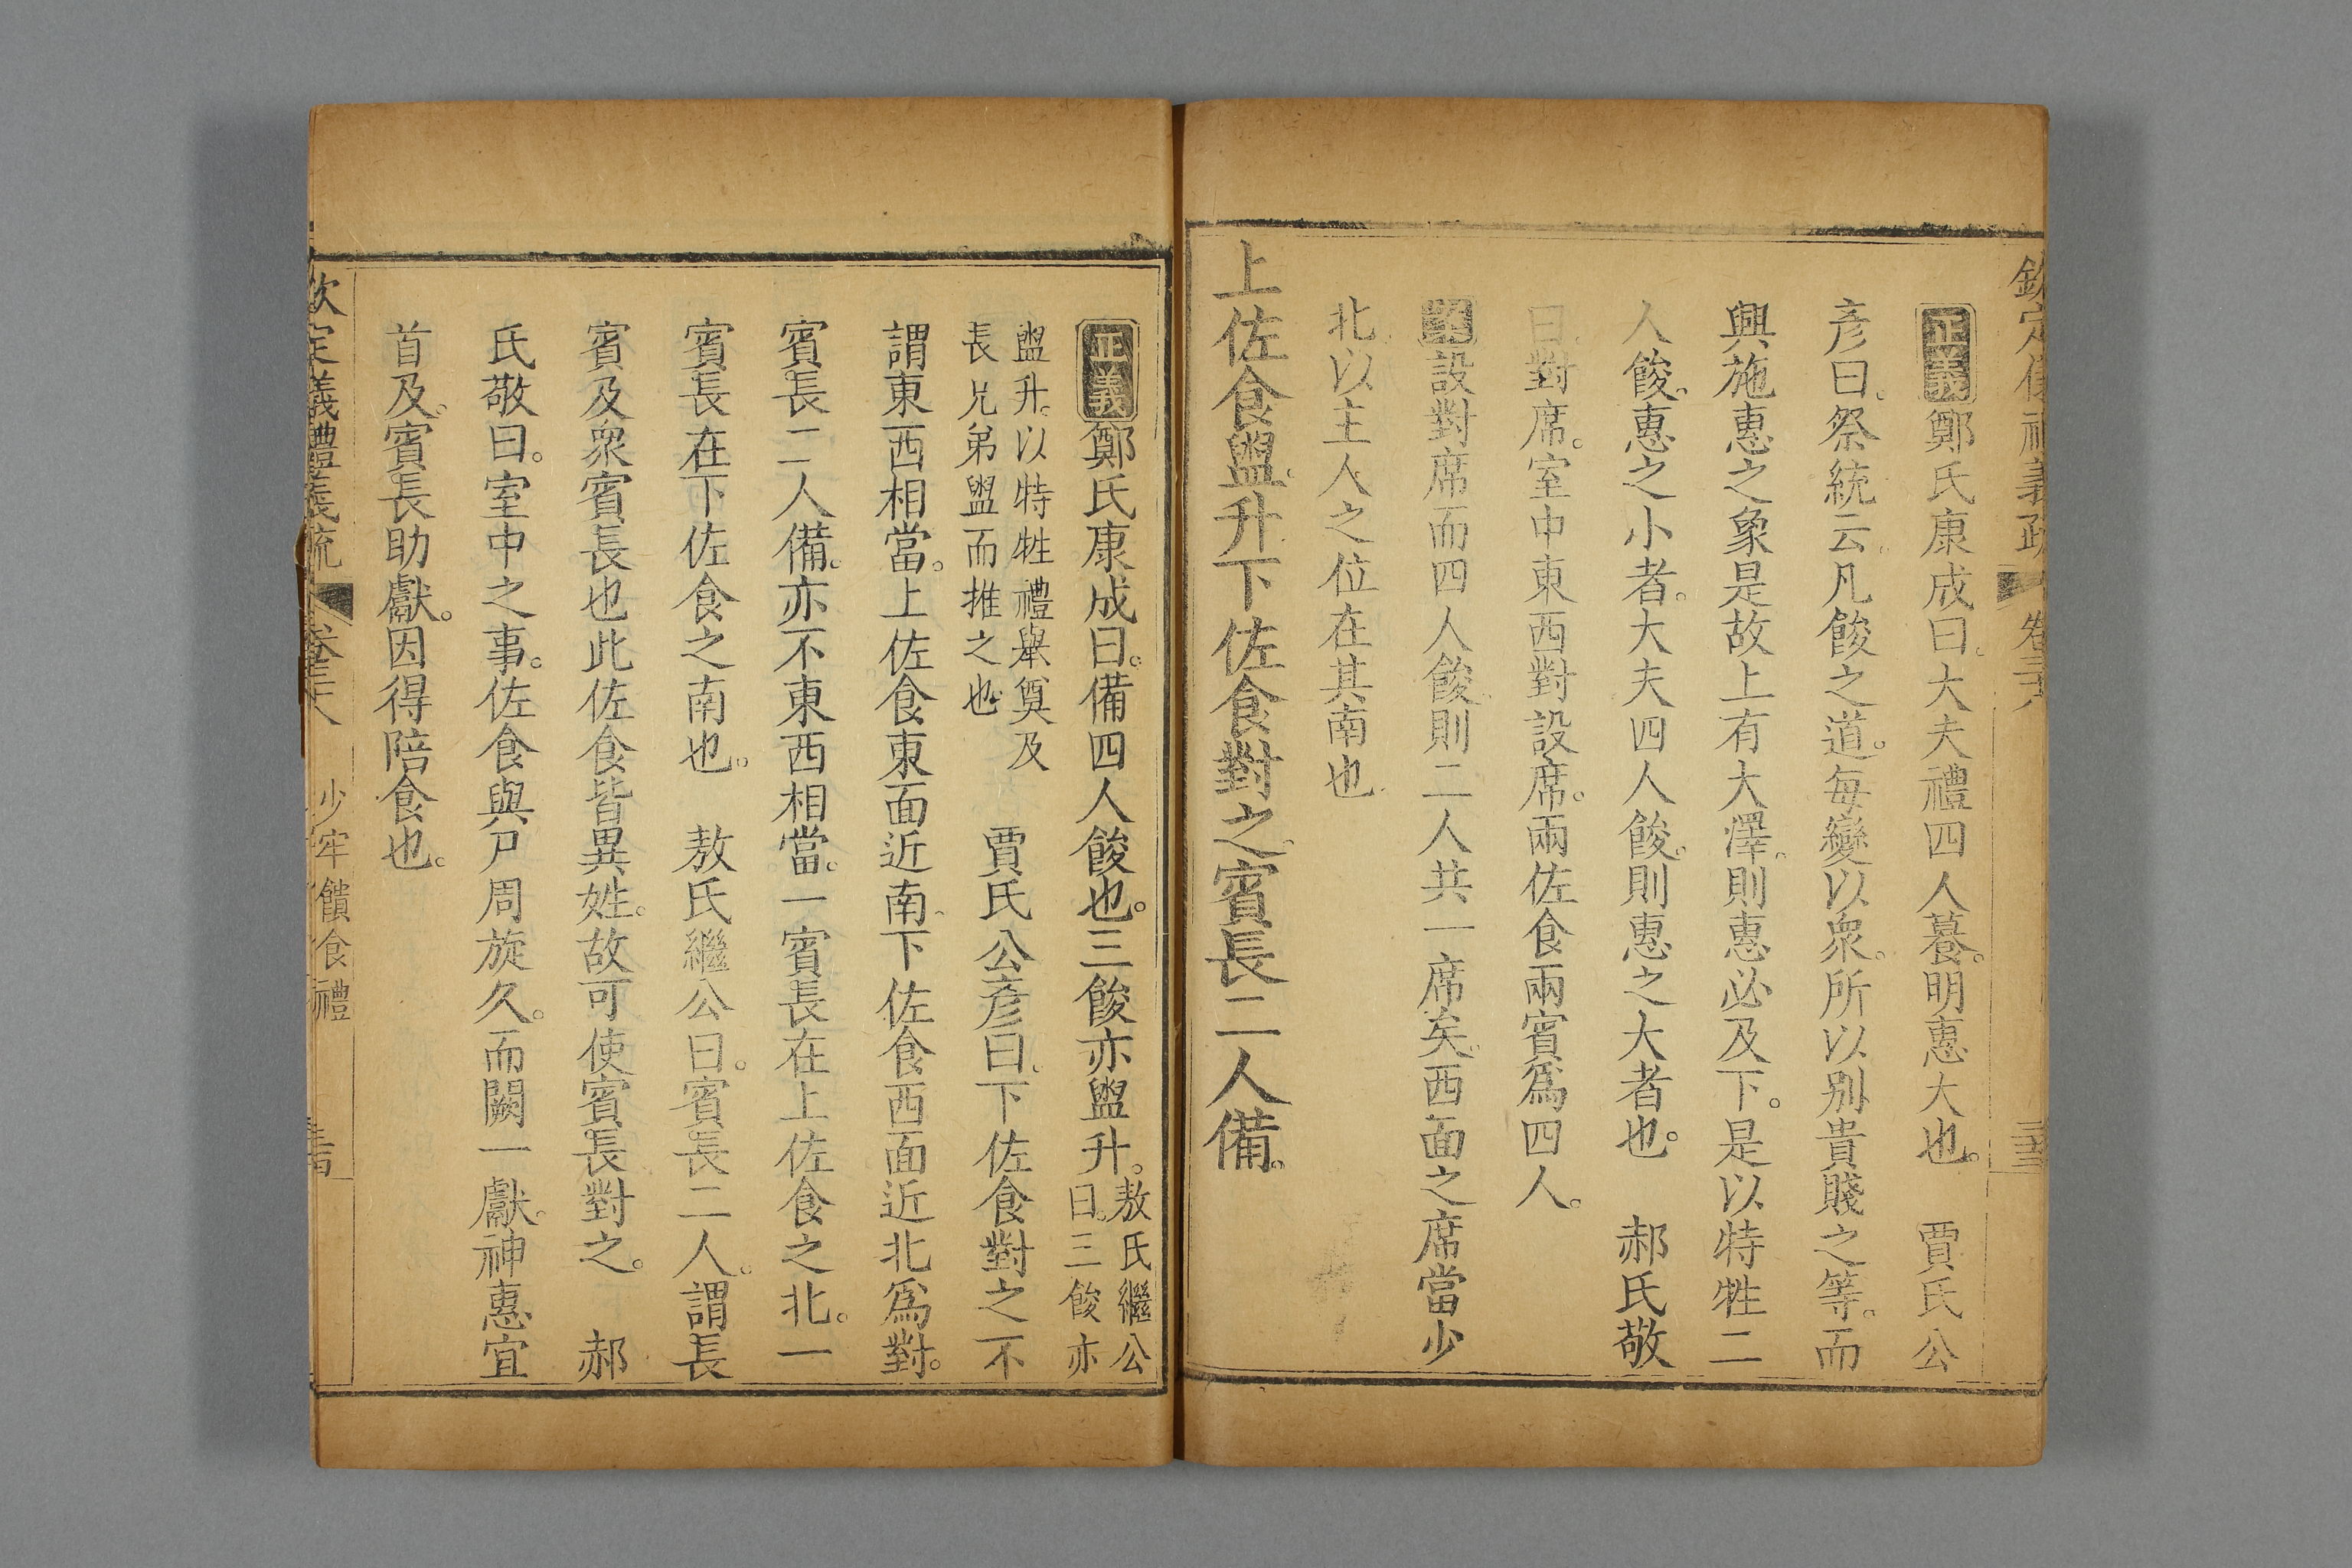 欽定儀禮義疏 卷三十八
正義鄭氏康成曰。大夫禮四人餕。明惠大也。 賈氏公
彥曰。祭統云。凡餕之道。每變以衆。所以别貴賤之等。而
興施惠之象。是故上有大澤。則惠必及下。是以特牲二
人餕。惠之小者。大夫四人餕。則惠之大者也。 郝氏敬
曰。對席。室中東西對設席。兩佐食兩賓爲四人。
設對席而四人餕。則二人共一席矣。西面之席當少
北。以主人之位在其南也。
上佐食盥升。下佐食對之。賓長二人備。
正義鄭氏康成曰。備四人餕也。三餕亦盥升。敖氏繼公
曰。三餕亦
盥升。以特牲禮舉奠及
長兄弟盥而推之也。 賈氏公彥曰。下佐食對之。不
謂東西相當。上佐食東面近南。下佐食西面近北爲對。
賓長二人備。亦不東西相當。一賓長在上佐食之北。一
賓長在下佐食之南也。 敖氏繼公曰。賓長二人。謂長
賓及衆賓長也。此佐食皆異姓。故可使賓長對之。 郝
氏敬曰。室中之事。佐食與尸周旋久。而闕一獻。神惠宜
首及。賓長助獻。因得陪食也。
欽定儀禮義疏 卷三十八 少牢饋食禮